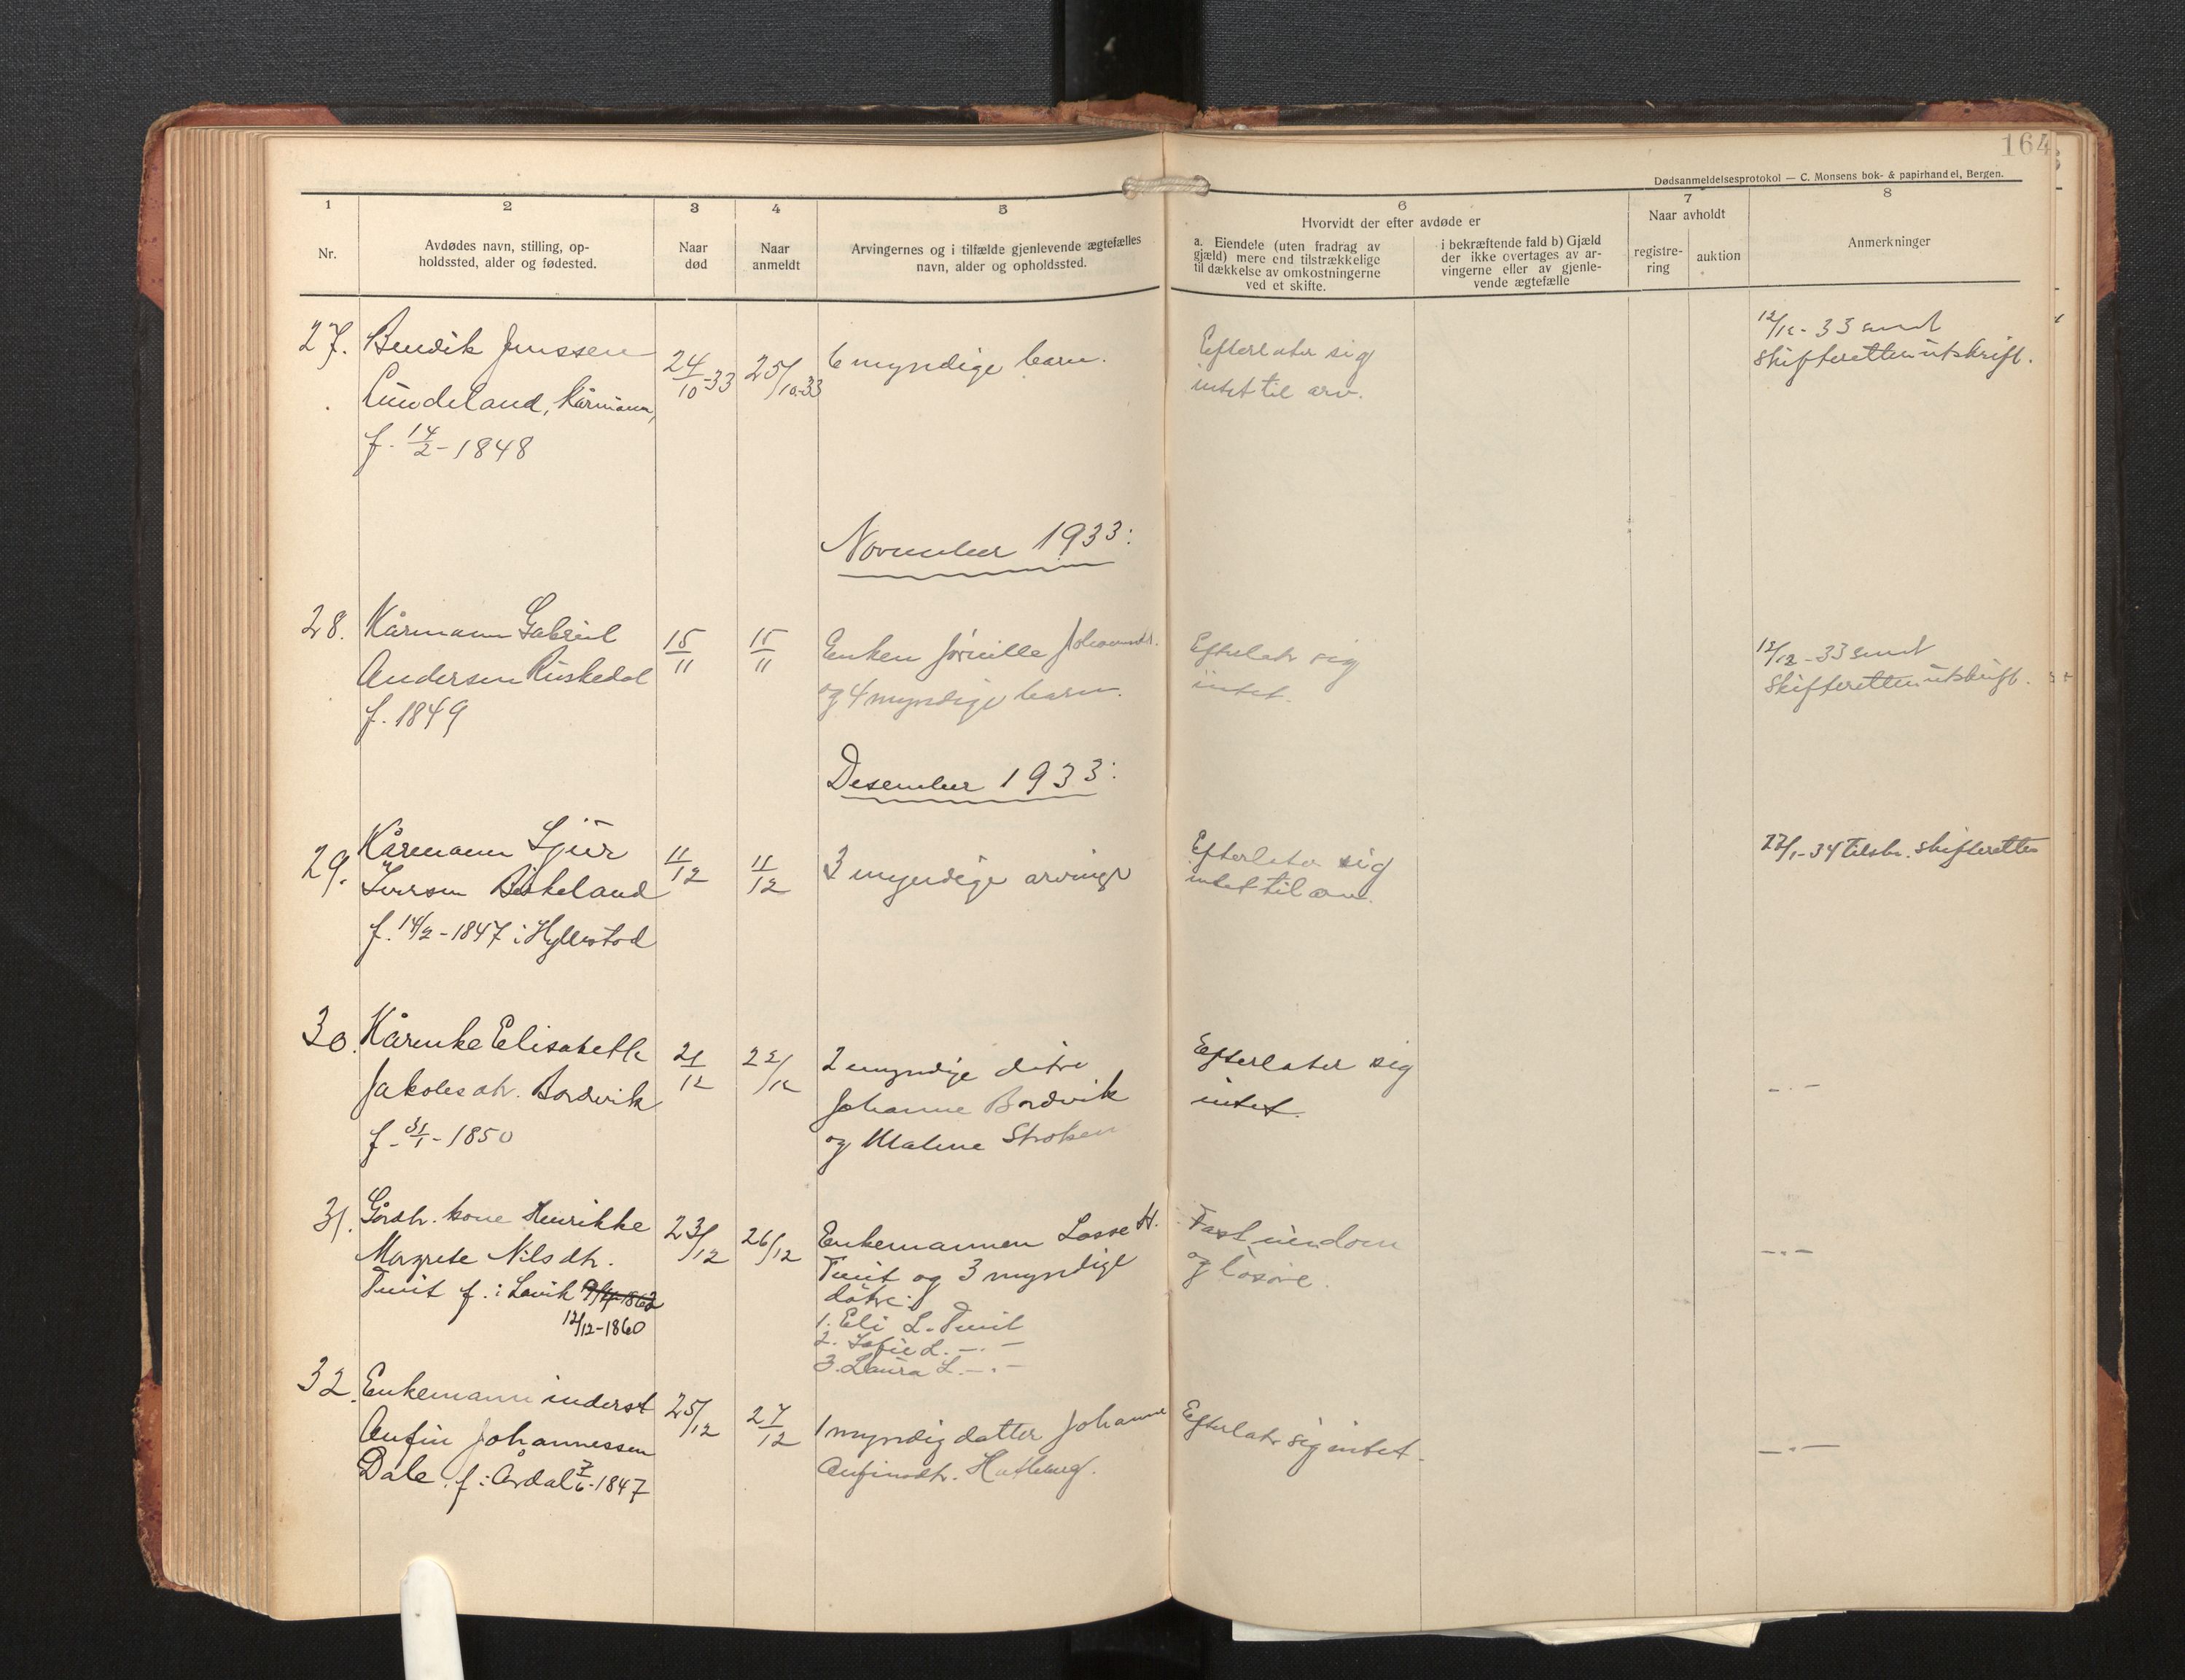 164
Dødsanmeldelsesprotokol — C. Monsens bok- & papirhandel, Bergen.
1
2
3
4
5
6
7
8
Nr.
Avdødes navn, stilling, op-
holdssted, alder og fødested.
Naar
død
Naar
anmeldt
Arvingernes og i tilfælde gjenlevende ægtefælles
navn, alder og opholdssted.
Hvorvidt der efter avdøde er
a. Eiendele (uten fradrag av
gjæld) mere end tilstrækkelige
til dækkelse av omkostningerne
ved et skifte.
i bekræftende fald b) Gjæld
der ikke overtages av ar-
vingerne eller av gjenle-
vende ægtefælle
Naar avholdt
registre-
ring
auktion
Anmerkninger
27.
Bendik Jenssen
Lundeland, kårmann,
f. 14/2 - 1848
24/10-33
25/10-33
6 myndige barn.
Efterlater sig
intet til arv.
12/12- 33 sendt
skifteretten utskrift.
November 1933:
28.
Kårmann Gabriel
Andersen Risnedal
f. 1849
15/11
15/11
Enken
og 4 myndige barn.
Efterlatr sig
intet.
12/12 - 33 sendt
Skifteretten utskrift.
Desember 1933:
29.
Kårmann Sjur
Iversen Birkeland
f. 14/2 - 1847 i Hyllestad
11/12
11/12
3 myndige arvinger
Efterlater sig
intet til arv.
22/1-34 tilskr. skifteretten
30.
Kårenke Elisabeth
Jakobsdtr. Bordvik
f. 31/1 - 1850
21/12
22/12
2 myndige døtre
Johanne Bordvik
og Malene Stroken
Efterlater sig
intet.
- . -
31.
Gårdbr. kone Henrikke
Margrete Nilsdtr.
Tveit f. i Lavik
12/12-1860
23/12
26/12
Enkemannen Lasse H.
Tveit og 3 myndige
døtre:
1. Eli L. Tveit
2. Sofie L. -.-
3. Laura L. -.-
Fast eiendom
og løsøre.
-.-
32.
Enkemann inderst
Anfin Johannessen
Dale. f. i Årdal 7/6-1847
25/12
27/12
1 myndig datter Johanne
Anfinsdtr.
Efterlatr sig intet.
-.-